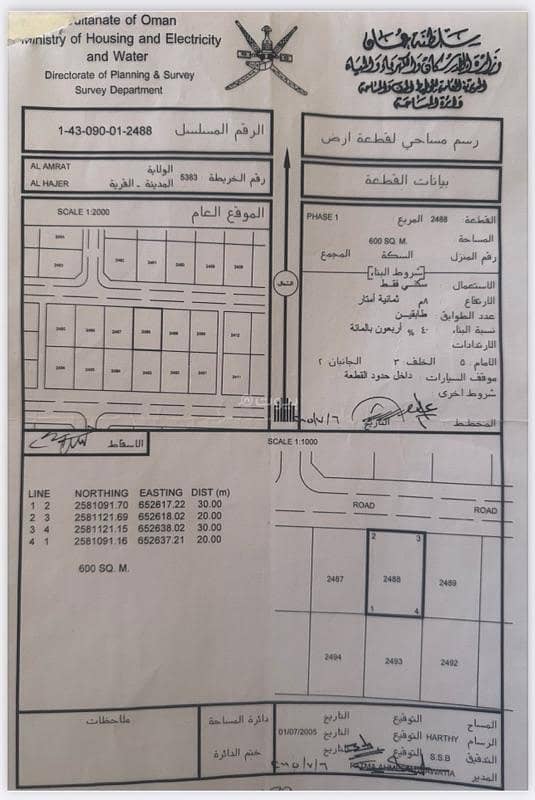 Sultanate of Oman
Ministry of Housing and Electricity
and Water
Directorate of Planning & Survey
Survey Department
سلطنة عمان
وزارة الإسكان والكهرباء والمياه
المديرية العامة للتخطيط والمساحة
دائرة المساحة
1-43-090-01-2488 الرقم المسلسل
رسم مساحي لقطعة ارض
AL AMRAT الولاية
AL HAJER المدينة - القرية 5383 رقم الخريطة
بيانات القطعة
SCALE 1:2000 الموقع العام
PHASE 1 المربع 2488 القطعة
600 SQ. M. المساحة
المجمع السكة رقم المنزل
شروط البناء
سكني فقط الاستعمال
٨م ثمانية أمتار الارتفاع
طابقين عدد الطوابق
٤٠ % أربعون بالمائة نسبة البناء
الارتدادات
الامام ٥ الخلف ٣ الجانبان ٢
داخل حدود القطعة موقف السيارات
شروط اخرى
المخطط التاريخ
الشمال
2485 2486 2487 2488 2489 2490 2412
2494 2493 2492 2491 2411
الاسقاط
SCALE 1:1000
LINE NORTHING EASTING DIST (m)
1 2 2581091.70 652617.22 30.00
2 3 2581121.69 652618.02 20.00
3 4 2581121.15 652638.02 30.00
4 1 2581091.16 652637.21 20.00
600 SQ. M.
ROAD
ROAD
2 3
2487 2488 2489
1 4
2494 2493 2492
ملاحظات
دائرة المساحة
ختم الدائرة
المساح التوقيع التاريخ
الرسام HARTHY التوقيع التاريخ 01/07/2005
التدقيق S.S.B التوقيع التاريخ
المدير